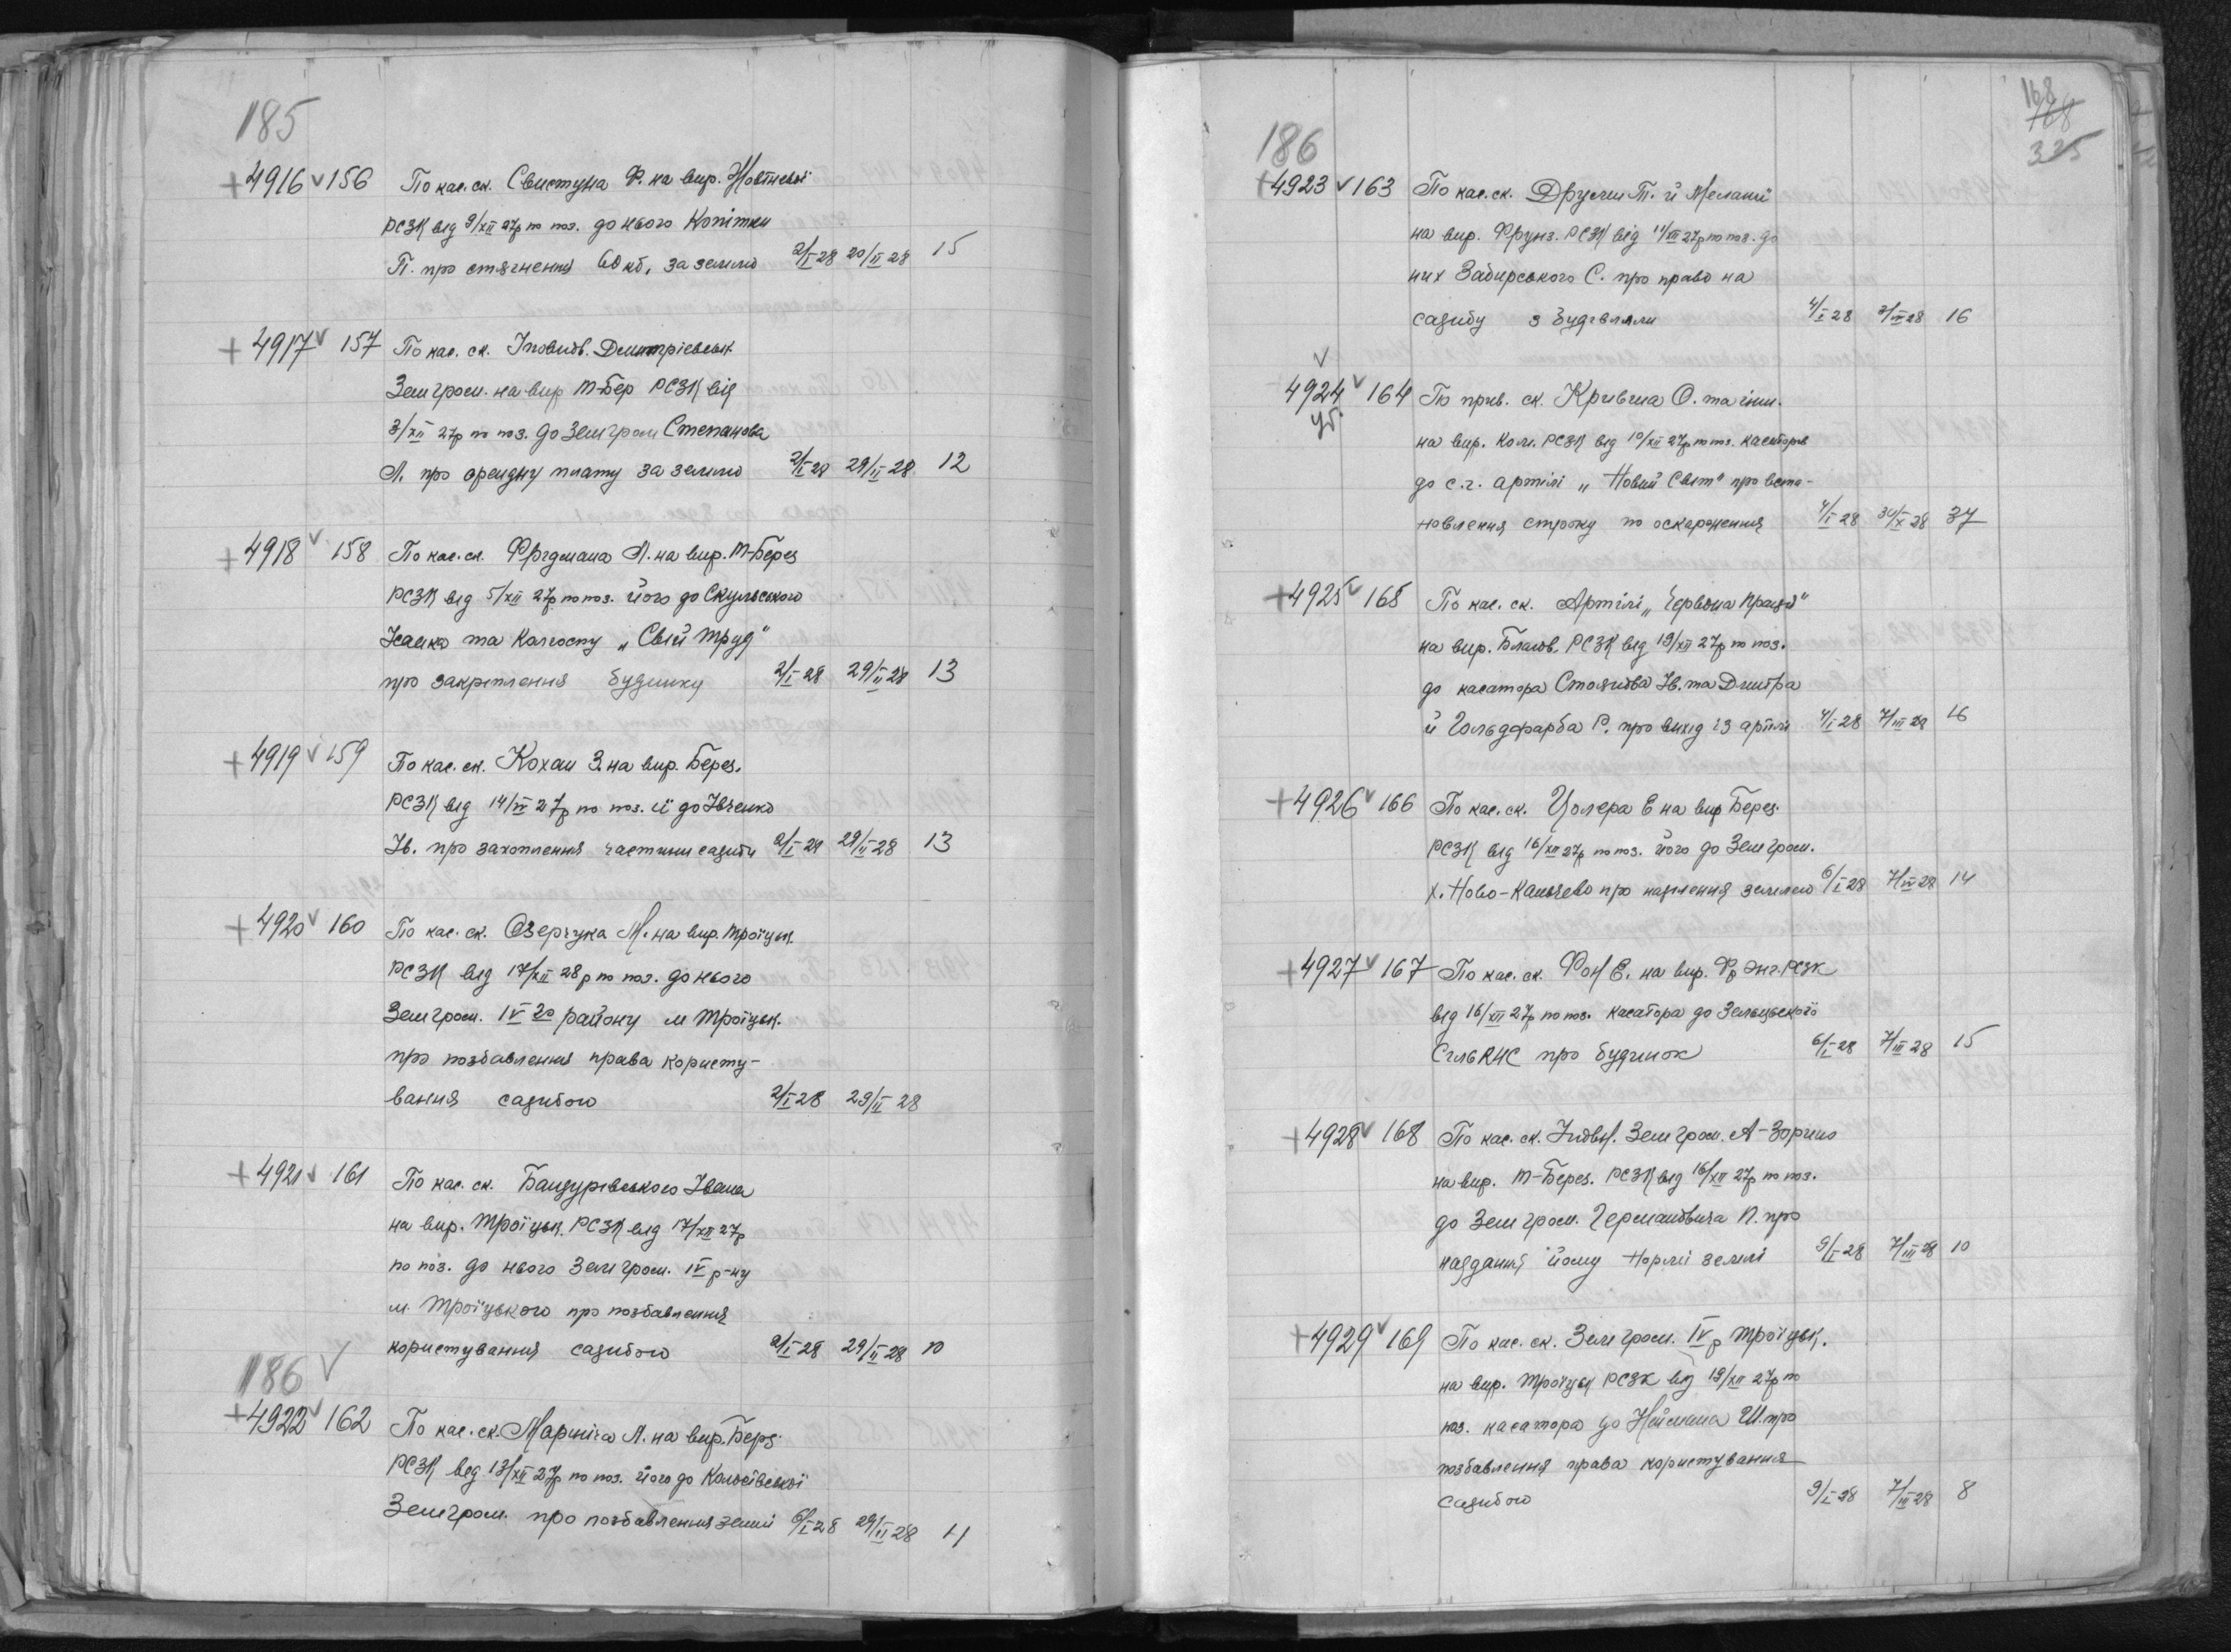 185
+4916 v 156 По кас. ск. Свистуна Ф. на вир. Жовтневої
РСЗК від 9/XII 27р по поз. до нього Копітки
П. про стягнення 60 кб. за землю 2/I-28 20/II 28 15
+4917 v 157 По кас. ск. Дмитрієвськ.
Земгром. на вир Т-Бер РСЗК від
3/XII 27р по поз. до Земгром Степанова
Л. про орендну плату за землю 2/I 28 29/II 28 12
+4918 v 158 По кас. ск. Фрідмана Л. на вир. Т-Берез
РСЗК від 5/XII 27р по поз. його до Скульського
Ісаика та Колгоспу „Свій труд"
про закріплення будинку 2/I-28 29/II 28 13
+4919 v 159 По кас. ск. Кохан З. на вир. Берез.
РСЗК від 14/ 27р по поз. її до Івченко
Ів. про захоплення частини садиби 2/I-28 29/II 28 13
+4920 v 160 По кас. ск. Озерчука М. на вир. Троїцьк.
РСЗК від 17/XII 28р по поз. до нього
Земгром. IV го району м Троїцьк.
про позбавлення права користу-
вання садибою 2/I 28 29/II 28
+4921 v 161 По кас. ск. Бандурівського Івана
на вир. Троїцьк. РСЗК від 17/XII 27р
по поз. до нього Земгром. IV р-ну
м. Троїцького про позбавлення
користування садибою 2/I-28 29/II 28 10
186 V
+4922 v 162 По кас. ск. Марініча А. на вир. Берз
РСЗК від 13/XII 27р по поз. його до
Земгром. про позбавлення землі 6/I-28 29/II 28 11
168
168
325
186
+4923 v 163 По кас. ск. Т. й Меланії
на вир. Фрунз. РСЗК від 11/XII 27р по поз. до
них Забирського С. про право на
садибу з будівлями 4/I 28 28 16
v
4924 v 164 По прив. ск. Кривчна О. та інш.
уб.
на вир. Ком. РСЗК від 10/XII 27р по поз. касаторів
до с.г. артілі „Новий Світ" про вста-
новлення строку по оскарження 4/I 28 30/X 28 37
+4925 v 165 По кас. ск. Артілі „Червона Праця"
на вир. Благов. РСЗК від 19/XII 27р по поз.
до касатора Стоянова Ів. та Дмитра
й Гольдфарба Р. про вихід із артілі 4/I-28 7/III 28 16
+4926 v 166 По кас. ск. Цолера Е на вир Берез.
РСЗК від 16/XII 27р по поз. його до Земгром.
х. Ново-Каньчево про наділення землею 6/I-28 28 14
+4927 v 167 По кас. ск. Фон Е. на вир. Фр Энг. РСЗК
від 16/XII 27р по поз. касатора до Зельцьського
СільРНС про будинок 6/I-28 7/III 28 15
+4928 v 168 По кас. ск. Земгром. А-Зоріно
на вир. Т-Берез. РСЗК від 16/XII 27р по поз.
до Земгром. Германовича П. про
надання йому норми землі 9/I-28 7/III 28 10
+4929 v 169 По кас. ск. Земгром. IV р Троїцьк.
на вир. Троїцьк РСЗК від 19/XII 27р по
поз. касатора до Наймана Ш. про
позбавлення права користування
садибою 9/I-28 7/III 28 8